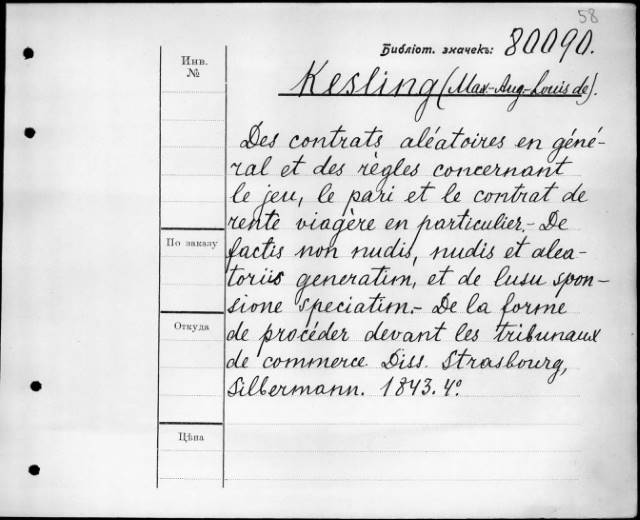 58
Библіот. значекъ: 80090.
Инв.
№
Kesling (Max-Aug-Louis de).
Des contrats aléatoires en géné-
ral et des règles concernant
le jeu, le pari et le contrat de
rente viagère en particulier.- De
По заказу
factis non nudis, nudis et alea-
toriis generatim, et de lusu spon-
sione speciatim.- De la forme
Откуда
de procéder devant les tribunaux
de commerce. Diss. Strasbourg,
Silbermann. 1843. 4°.
Цѣна